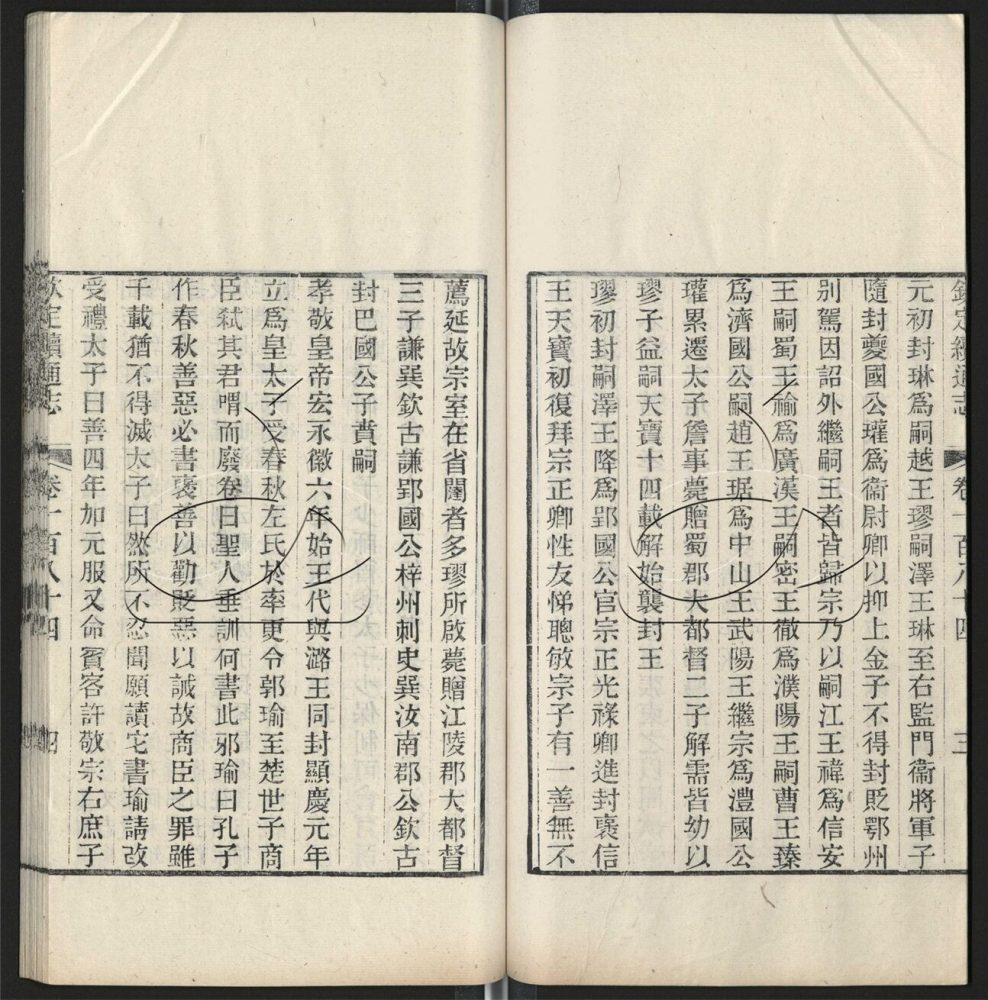 欽定續通志 卷一百八十四 三
元初封琳為嗣越王璆嗣澤王琳至右監門衞將軍子
隨封夔國公瓘為衞尉卿以抑上金子不得封貶鄂州
別駕因詔外繼嗣王者皆歸宗乃以嗣江王禕為信安
王嗣蜀王褕為廣漢王嗣密王徹為濮陽王嗣曹王臻
為濟國公嗣趙王琚為中山王武陽王繼宗為澧國公
瓘累遷太子詹事薨贈蜀郡大都督二子解需皆幼以
璆子益嗣天寶十四載解始襲封王
璆初封嗣澤王降為郢國公官宗正光祿卿進封褒信
王天寶初復拜宗正卿性友悌聰敏宗子有一善無不
薦延故宗室在省闥者多璆所啟薨贈江陵郡大都督
三子謙巽欽古謙郢國公梓州刺史巽汝南郡公欽古
封巴國公子賁嗣
孝敬皇帝宏永徽六年始王代與潞王同封顯慶元年
立為皇太子受春秋左氏於率更令郭瑜至楚世子商
臣弑其君喟而廢卷曰聖人垂訓何書此邪瑜曰孔子
作春秋善惡必書褒善以勸貶惡以誡故商臣之罪雖
千載猶不得滅太子曰然所不忍聞願讀它書瑜請改
受禮太子曰善四年加元服又命賓客許敬宗右庶子
欽定續通志 卷一百八十四 四